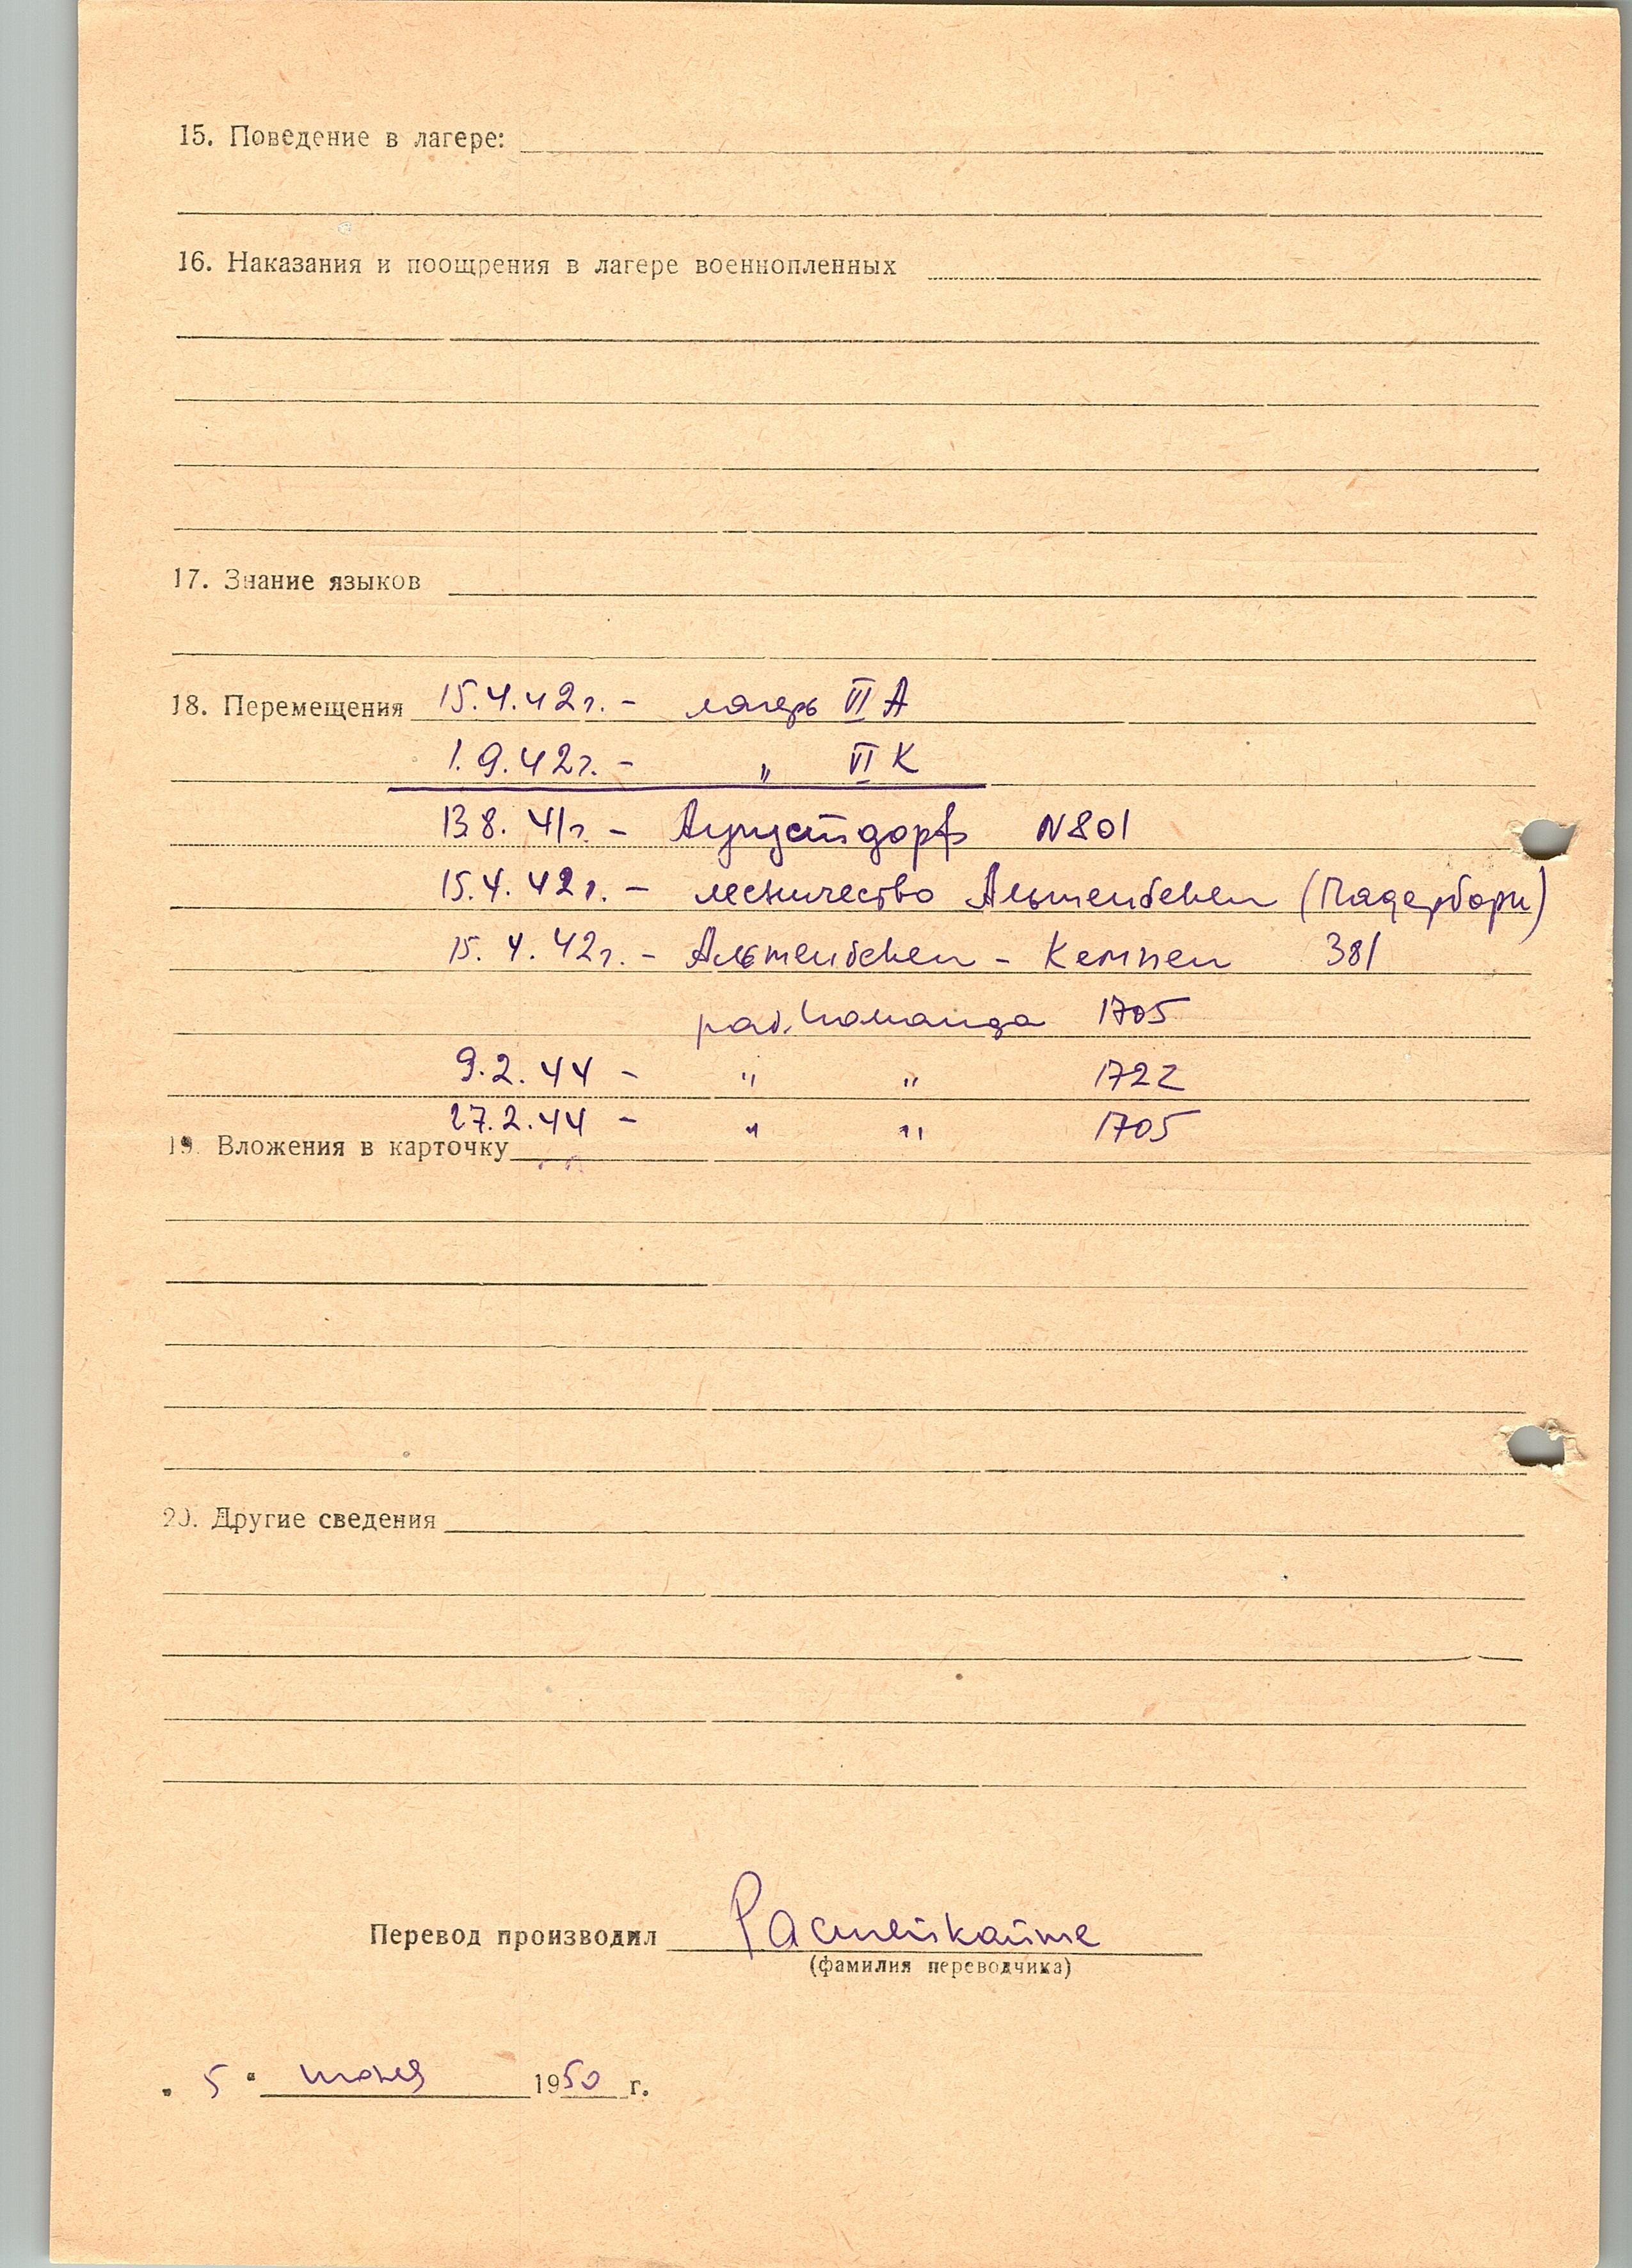 15. Поведение в лагере:
16. Наказания и поощрения в лагере военнопленных
17. Знание языков
18. Перемещения 15.4.42г. - лагерь VI А
1.9.42г. - " VI К
13.8.41г. - Аугустдорф N 801
15.4.42г. - лесничество Альтенбекен (Падерборн)
15.4.42г. - Альтенбекен - Кемпен 381
раб. команда 1705
9.2.44 - " " 1722
27.2.44 - " " 1705
19. Вложения в карточку
20. Другие сведения
Перевод производил Распейкайте
(фамилия переводчика)
" 5 " июня 1950 г.